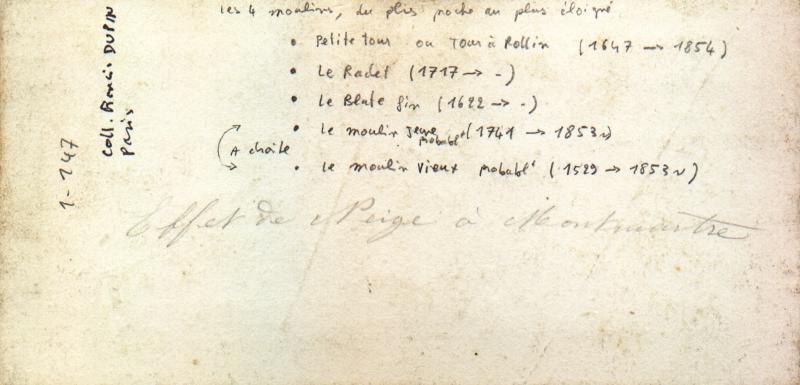 les 4 moulins, du plus proche au plus éloigné
• Petite tour ou Tour à Rollin (1647 → 1854)
• Le Radet (1717 → -)
• Le Blute fin (1622 → -)
• Le moulin Jeune probablt (1741 → 1853 ~)
A droite
• Le moulin Vieux probablt (1529 → 1853 ~)
Effet de Neige à Montmartre
1-147
Coll. Francis DUPIN
Paris